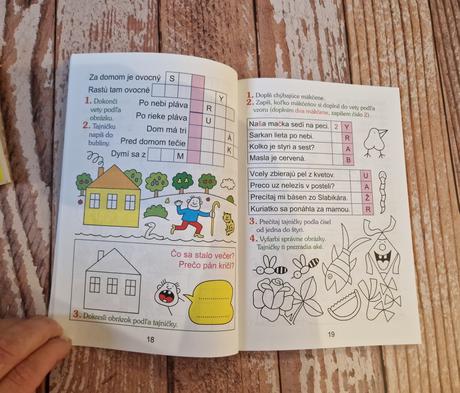 Za domom je ovocný S
Rastú tam ovocné
Y
1. Dokonči
vety podľa
obrázku.
2. Tajničku
napíš do
bubliny.
Po nebi pláva R
Po rieke pláva U
Dom má tri
Pred domom tečie A
Dymí sa z M K
Čo sa stalo večer?
Prečo pán kričí?
3. Dokresli obrázok podľa tajničky.
18
1. Doplň chýbajúce mäkčene.
2. Zapíš, koľko mäkčeňov si doplnil do vety podľa
vzoru (doplním dva mäkčene, zapíšem číslo 2).
Naša mačka sedí na peci. 2 Y
Šarkan lieta po nebi. R
Kolko je štyri a sest? A
Masla je červená. B
Vcely zbierajú peľ z kvetov. U
Preco uz nelezis v posteli? A
Precitaj mi básen zo Slabikára. Ž
Kuriatko sa ponáhla za mamou. R
3. Prečítaj tajničku podľa čísel
od jedna do štyri.
4. Vyfarbi správne obrázky.
Tajničky ti prezradia aké.
19